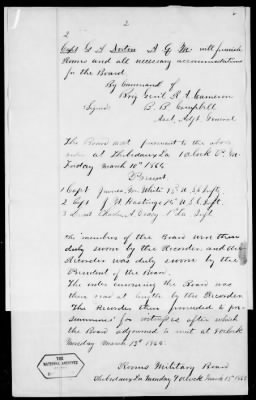 2
2
Capt G. A. A. Q. M. will furnish
Rooms and all necessary accommodations
for the Board.
By Command of
Brig Genl R. A. Cameron
Signed B. B. Campbell
Asst. Adjt. General
The Board met pursuant to the above
order at Thibodaux La 1 oclock P. M.
March 10th 1864
Present
1 Capt James M. White 15th U. S. Inft
2 Capt J. H. Hastings 15th U. S. Inft
3 Lieut Charles A. 1st La Inft
The members of the Board were then
duly sworn by the Recorder, and the
Recorder was duly sworn by the
President of the Board.
The order convening the Board was
then read at length by the Recorder
The Recorder then proceeded to
summons for witnesses after which
the Board adjourned to meet at 9 oclock
Monday March 1864.
Rooms Military Board
Thibodaux La Monday 9 oclock March 1864
THE
NATIONAL ARCHIVES